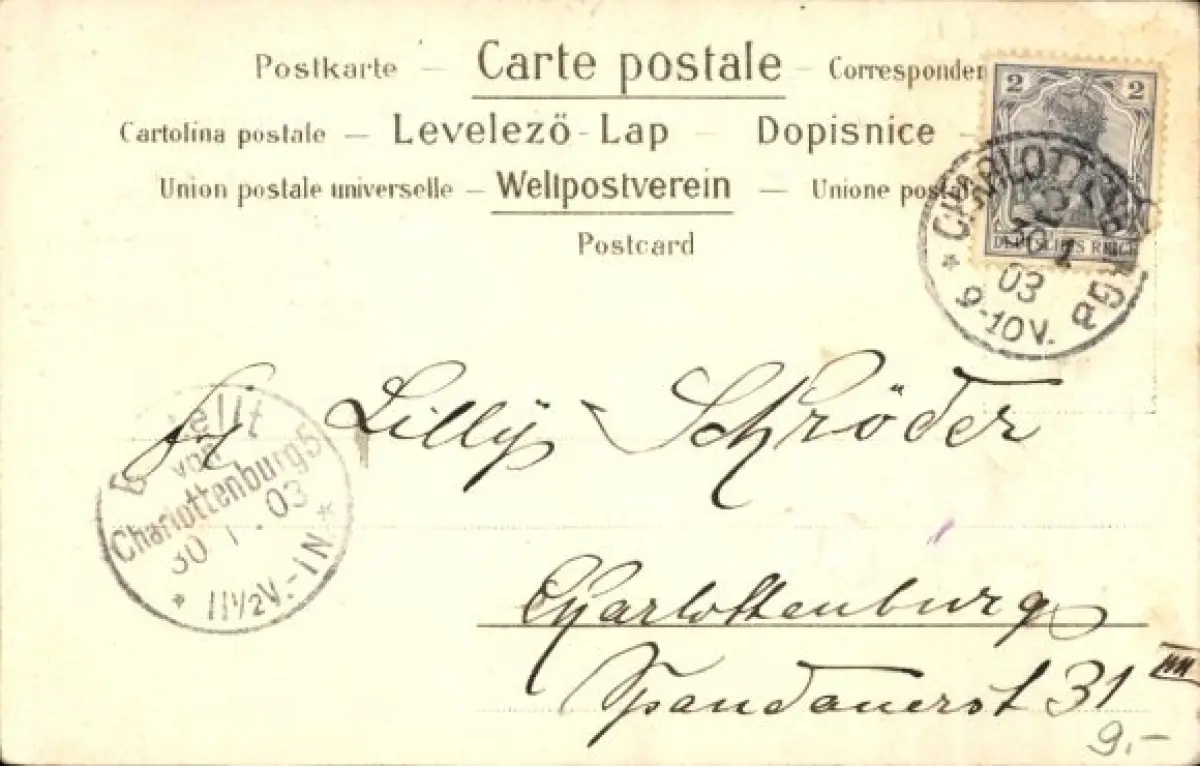 Postkarte – Carte postale – Corresponden
Cartolina postale – Levelező-Lap – Dopisnice –
Union postale universelle – Weltpostverein – Unione postale
Postcard
2 2
DEUTSCHES REICH
CHARLOTTENBURG
30 1
03
9-10V.
Frl Lilly Schröder
Bestellt
vom
Charlottenburg 5
30. 1. 03
11½V.-1N
Charlottenburg
Spandauerst 31 III
9.-